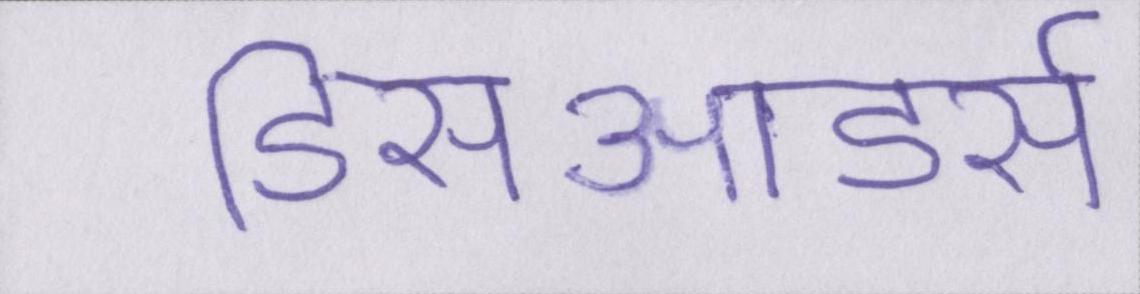 डिसआडर्स